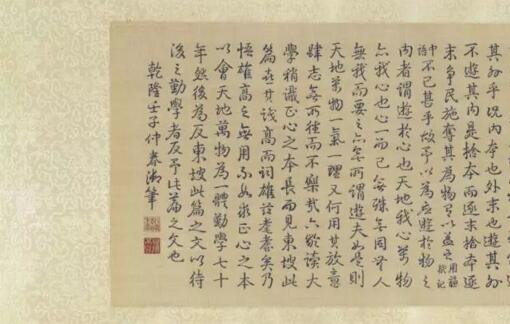 其外乎況内本也外末也遊其外
不遊其内是捨本而逐末捨本逐
末爭民施奪其為物以蓋之用記
中語不已甚乎故予以為應遊於物之
内者謂遊於心也天地我心萬物
亦我心也心一而已無殊無同無人
無我而要之亦無所謂遊夫如是則
天地萬物一氣一理又何用其放意
肆志無所往而不樂哉讀大
學稍識正心之本長而見東坡此
篇喜其談高而詞雄兹耄耋矣乃
悟雄高之無用不如求正心之本
以會天地萬物為一體勤學七十
年然後為反東坡此篇之文以待
後之勤學者反予此篇之文也
乾隆壬子仲春御筆